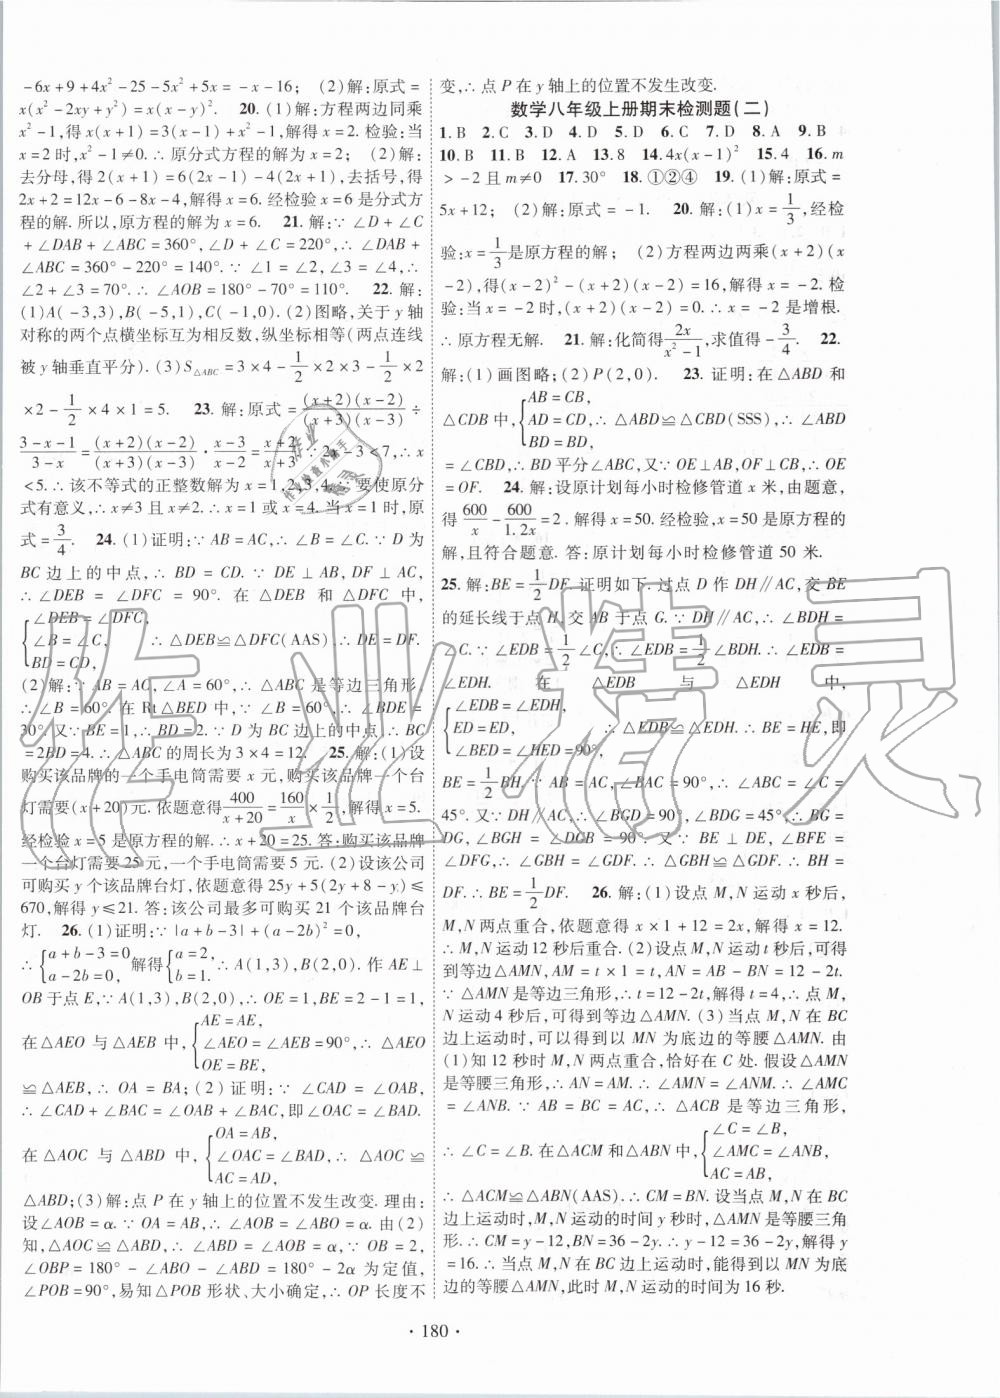 -6x+9+4x²-25-5x²+5x=-x-16；(2)解:原式=
x(x²-2xy+y²)=x(x-y)². 20. (1)解:方程两边同乘
x²-1,得x(x+1)=3+x²-1,解得x=2. 检验:当
x=2时,x²-1≠0. ∴原分式方程的解为x=2；(2)解:
去分母,得2(x+1)=6(2x-1)-4(2x+1),去括号,得
2x+2=12x-6-8x-4,解得x=6. 经检验x=6是分式方
程的解. 所以,原方程的解为x=6. 21. 解:∵∠D+∠C
+∠DAB+∠ABC=360°,∠D+∠C=220°,∴∠DAB+
∠ABC=360°-220°=140°. ∵∠1=∠2,∠3=∠4,∴
∠2+∠3=70°. ∴∠AOB=180°-70°=110°. 22. 解:
(1)A(-3,3),B(-5,1),C(-1,0). (2)图略,关于y轴
对称的两个点横坐标互为相反数,纵坐标相等(两点连线
被y轴垂直平分). (3)S△ABC=3×4-1/2×2×3-1/2×2
×2-1/2×4×1=5. 23. 解:原式=(x+2)(x-2)/(x+3)(x-3)÷
3-x-1/3-x=(x+2)(x-2)/(x+3)(x-3)·x-3/x-2=x+2/x+3. ∵2x-3<7,∴x
<5. ∴该不等式的正整数解为x=1,2,3,4. ∵要使原分
式有意义,∴x≠3且x≠2. ∴x=1或x=4. 当x=1时,原
式=3/4. 24. (1)证明:∵AB=AC,∴∠B=∠C. ∵D为
BC边上的中点,∴BD=CD. ∵DE⊥AB,DF⊥AC,
∴∠DEB=∠DFC=90°. 在△DEB和△DFC中,
{∠DEB=∠DFC,
∠B=∠C, ∴△DEB≌△DFC(AAS)∴DE=DF.
BD=CD,
(2)解:∵AB=AC,∠A=60°,∴△ABC是等边三角形,
∴∠B=60°. 在Rt△BED中,∵∠B=60°,∴∠BDE=
30°. 又∵BE=1,∴BD=2. ∵D为BC边上的中点,∴BC
=2BD=4. ∴△ABC的周长为3×4=12. 25. 解:(1)设
购买该品牌的一个手电筒需要x元,则购买该品牌一个台
灯需要(x+20)元. 依题意得400/x+20=160/x×1/2,解得x=5.
经检验x=5是原方程的解. ∴x+20=25. 答:购买该品牌
一个台灯需要25元,一个手电筒需要5元. (2)设该公司
可购买y个该品牌台灯,依题意得25y+5(2y+8-y)≤
670,解得y≤21. 答:该公司最多可购买21个该品牌台
灯. 26. (1)证明:∵|a+b-3|+(a-2b)²=0,
∴{a+b-3=0 a-2b=0,解得{a=2, b=1. ∴A(1,3),B(2,0). 作AE⊥
OB于点E,∵A(1,3),B(2,0),∴OE=1,BE=2-1=1,
{AE=AE,
在△AEO与△AEB中,∠AEO=∠AEB=90°,∴△AEO
OE=BE,
≌△AEB,∴OA=BA；(2)证明:∵∠CAD=∠OAB,
∴∠CAD+∠BAC=∠OAB+∠BAC,即∠OAC=∠BAD.
{OA=AB,
在△AOC与△ABD中,∠OAC=∠BAD,∴△AOC≌
AC=AD,
△ABD；(3)解:点P在y轴上的位置不发生改变. 理由:
设∠AOB=α. ∵OA=AB,∴∠AOB=∠ABO=α. 由(2)
知,△AOC≌△ABD,∴∠ABD=∠AOB=α. ∵OB=2,
∠OBP=180°-∠ABO-∠ABD=180°-2α为定值,
∠POB=90°,易知△POB形状、大小确定,∴OP长度不
变,∴点P在y轴上的位置不发生改变.
数学八年级上册期末检测题(二)
1. B 2. C 3. D 4. D 5. C 6. D 7. D 8. A 9. B
10. B 11. B 12. A 13. 8 14. 4x(x-1)² 15. 4 16. m
>-2且m≠0 17. 30° 18. ①②④ 19. (1)解:原式=
5x+12；(2)解:原式=-1. 20. 解:(1)x=1/3,经检
验:x=1/3是原方程的解；(2)方程两边同乘(x+2)(x
-2),得(x-2)²-(x+2)(x-2)=16,解得x=-2. 检
验:当x=-2时,(x+2)(x-2)=0,∴x=-2是增根.
∴原方程无解. 21. 解:化简得2x/x²-1,求值得-3/4. 22.
解:(1)画图略；(2)P(2,0). 23. 证明:在△ABD和
{AB=CB,
△CDB中,AD=CD,∴△ABD≌△CBD(SSS)∴∠ABD
BD=BD,
=∠CBD,∴BD平分∠ABC,又∵OE⊥AB,OF⊥CB,∴OE
=OF. 24. 解:设原计划每小时检修管道x米,由题意,
得600/x-600/1.2x=2. 解得x=50. 经检验,x=50是原方程的
解,且符合题意. 答:原计划每小时检修管道50米.
25. 解:BE=1/2DF. 证明如下. 过点D作DH∥AC,交BE
的延长线于点H,交AB于点G. ∵DH∥AC,∴∠BDH=
∠C. ∵∠EDB=1/2∠C,∴∠EDB=1/2∠BDH. ∴∠EDB=
∠EDH. 在△EDB与△EDH中,
{∠EDB=∠EDH,
ED=ED, ∴△EDB≌△EDH. ∴BE=HE,即
∠BED=∠HED=90°,
BE=1/2BH. ∵AB=AC,∠BAC=90°,∴∠ABC=∠C=
45°. 又∵DH∥AC,∴∠BGD=90°,∠BDG=45°. ∴BG=
DG,∠BGH=∠DGF=90°. 又∵BE⊥DE,∠BFE=
∠DFG,∴∠GBH=∠GDF. ∴△GBH≌△GDF. ∴BH=
DF. ∴BE=1/2DF. 26. 解:(1)设点M,N运动x秒后,
M,N两点重合,依题意得x×1+12=2x,解得x=12.
∴M,N运动12秒后重合. (2)设点M,N运动t秒后,可得
到等边△AMN,AM=t×1=t,AN=AB-BN=12-2t.
∵△AMN是等边三角形,∴t=12-2t,解得t=4,∴点M,
N运动4秒后,可得到等边△AMN. (3)当点M,N在BC
边上运动时,可以得到以MN为底边的等腰△AMN. 由
(1)知12秒时M,N两点重合,恰好在C处. 假设△AMN
是等腰三角形,∴AN=AM. ∴∠AMN=∠ANM. ∴∠AMC
=∠ANB. ∵AB=BC=AC,∴△ACB是等边三角形,
{∠C=∠B,
∴∠C=∠B. 在△ACM和△ABN中,∠AMC=∠ANB,
AC=AB,
∴△ACM≌△ABN(AAS). ∴CM=BN. 设当点M,N在BC
边上运动时,M,N运动的时间y秒时,△AMN是等腰三角
形. ∴CM=y-12,BN=36-2y. ∴y-12=36-2y,解得y
=16. ∴当点M,N在BC边上运动时,能得到以MN为底
边的等腰△AMN,此时M,N运动的时间为16秒.
· 180 ·
作业精灵